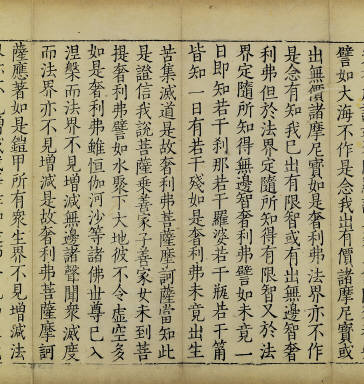 譬如大海不作是念我出有價諸摩尼寶或
出無價諸摩尼寶如是奢利弗法界亦不作
是念有知我已出有限智或有出無邊智奢
利弗但於法界定隨所知得有限智又於法
界定隨所知得無邊智奢利弗譬如未竟一
日即知若干剎那若干羅婆若干瓶若干筩
皆知一日有若干殘如是奢利弗未竟出生
苦集滅道是故奢利弗菩薩摩訶薩當知此
是證信我說菩薩乘善家子善家女未到菩
提奢利弗譬如水聚下大地彼不令虛空多
如是奢利弗雖恒伽河沙等諸佛世尊已入
涅槃而法界亦不見增減無邊諸聲聞眾滅度
而法界亦不見增減是故奢利弗菩薩摩訶
薩應著如是鎧甲所有眾生界不見增減法